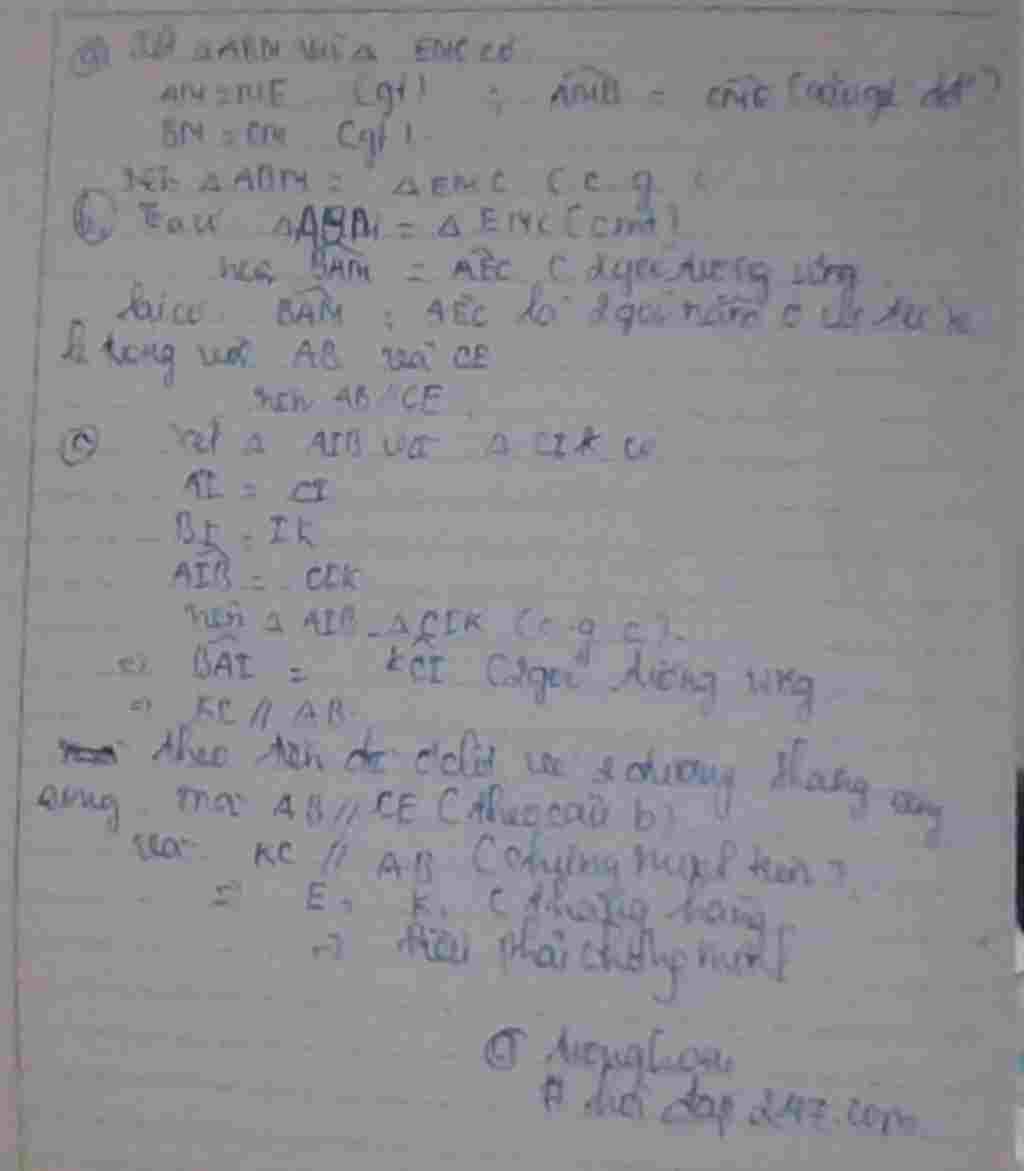 a) Xét ΔABM và Δ EMC có
AM = ME (gt) ; AMB = CME (đối đỉnh)
BM = CM (gt).
Nên Δ ABM = Δ EMC (c. g
b, Ta có ΔABM = Δ EMC (cmt)
nên BAM = AEC (2 góc tương ứng
lại có BAM ; AEC là 2 góc nằm ở
trong với AB và CE
nên AB // CE
c) xét Δ AIB và Δ CIK có
AI = CI
BI = IK
AIB = CIK
nên Δ AIB = Δ CIK (c. g. c).
=> BAI = KCI (2 góc tương ứng
=> KC // AB.
theo tiên đề đường thẳng song
song. mà AB // CE (theo câu b)
và KC // AB (chứng minh trên)
=> E, K, C thẳng hàng
=> điều phải chứng minh
hỏi đáp 247.com